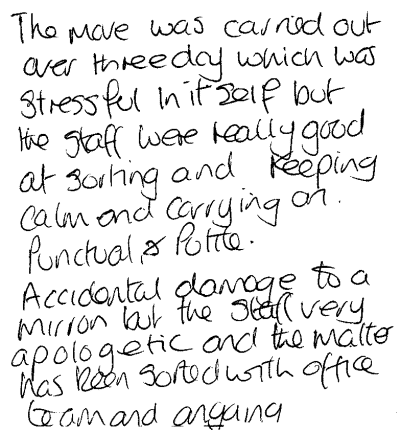 The move was carried out
over three day which was
stressful in it self but
the staff were really good
at sorting and keeping
calm and carrying on.
Punctual & Polite.
Accidental damage to a
mirror but the staff very
apologetic and the matter
has been sorted with office
team and ongoing